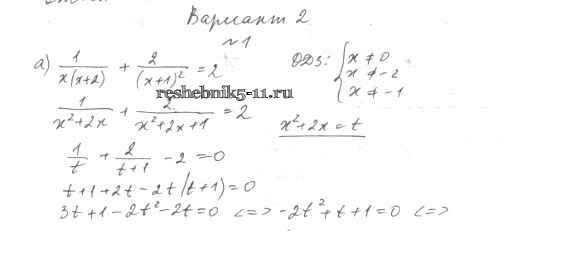 Вариант 2
№1
а) 1/(x(x+2)) + 2/(x+1)² = 2 ОДЗ: { x ≠ 0
x ≠ -2
x ≠ -1
reshebnik5-11.ru
1/(x²+2x) + 2/(x²+2x+1) = 2 x²+2x = t
1/t + 2/(t+1) - 2 = 0
t+1+2t-2t(t+1)=0
3t+1-2t²-2t=0 <=> -2t²+t+1=0 <=>